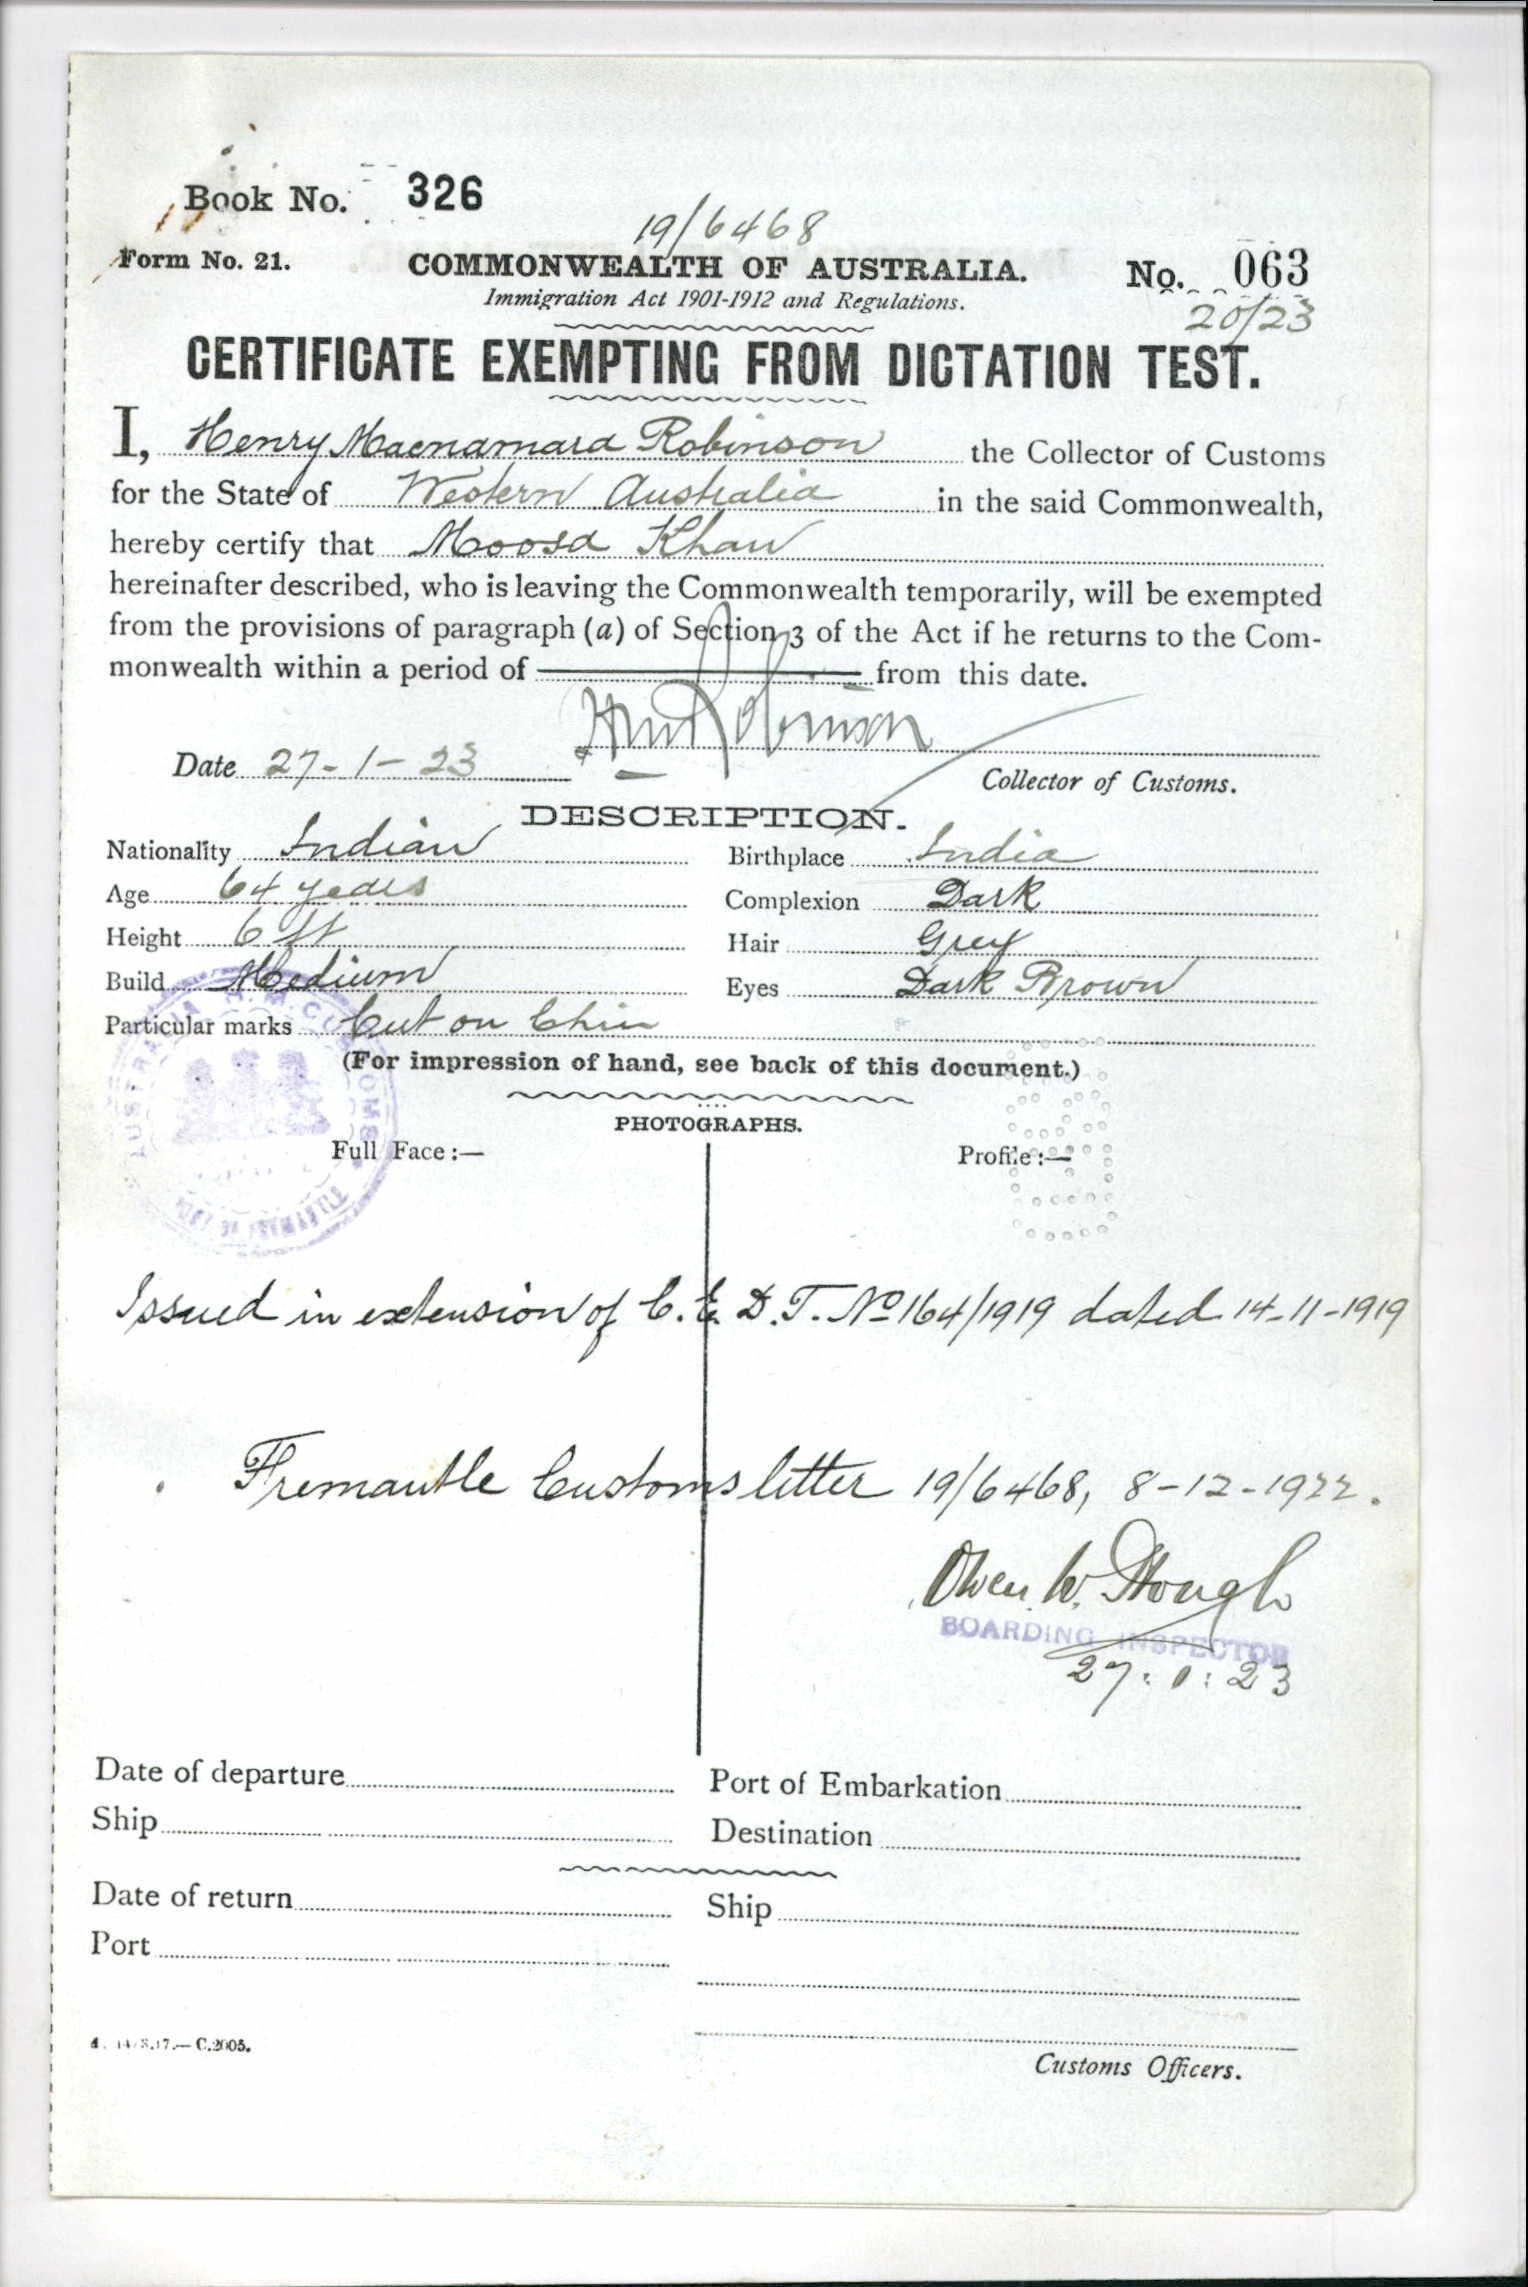 Book No. 326
19/6468
Form No. 21.
COMMONWEALTH OF AUSTRALIA.
No. 063
Immigration Act 1901-1912 and Regulations.
20/23
CERTIFICATE EXEMPTING FROM DICTATION TEST.
I, Henry Macnamara Robinson the Collector of Customs
for the State of Western Australia in the said Commonwealth,
hereby certify that Moosa Khan
hereinafter described, who is leaving the Commonwealth temporarily, will be exempted
from the provisions of paragraph (a) of Section 3 of the Act if he returns to the Com-
monwealth within a period of from this date.
HMRobinson
Date 27-1-23
Collector of Customs.
DESCRIPTION.
Nationality Indian Birthplace India
Age 64 years Complexion Dark
Height 6 ft Hair Grey
Build Medium Eyes Dark Brown
Particular marks Cut on Chin
(For impression of hand, see back of this document.)
PHOTOGRAPHS.
Full Face:— Profile:—
Issued in extension of C.E.D.T. No 164/1919 dated 14-11-1919
Fremantle Customs letter 19/6468, 8-12-1922.
Owen W.
BOARDING INSPECTOR
27:1:23
Date of departure Port of Embarkation
Ship Destination
Date of return Ship
Port
C.2005.
Customs Officers.